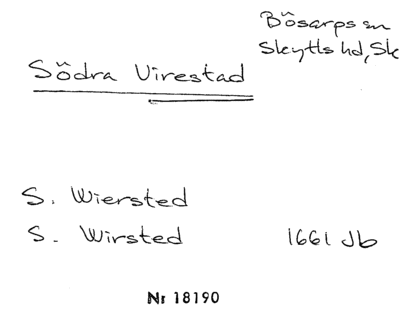 Bösarps sn
Skytts hd, Sk
Södra Virestad
S. Wiersted
S. Wirsted 1661 Jb
Nr 18190